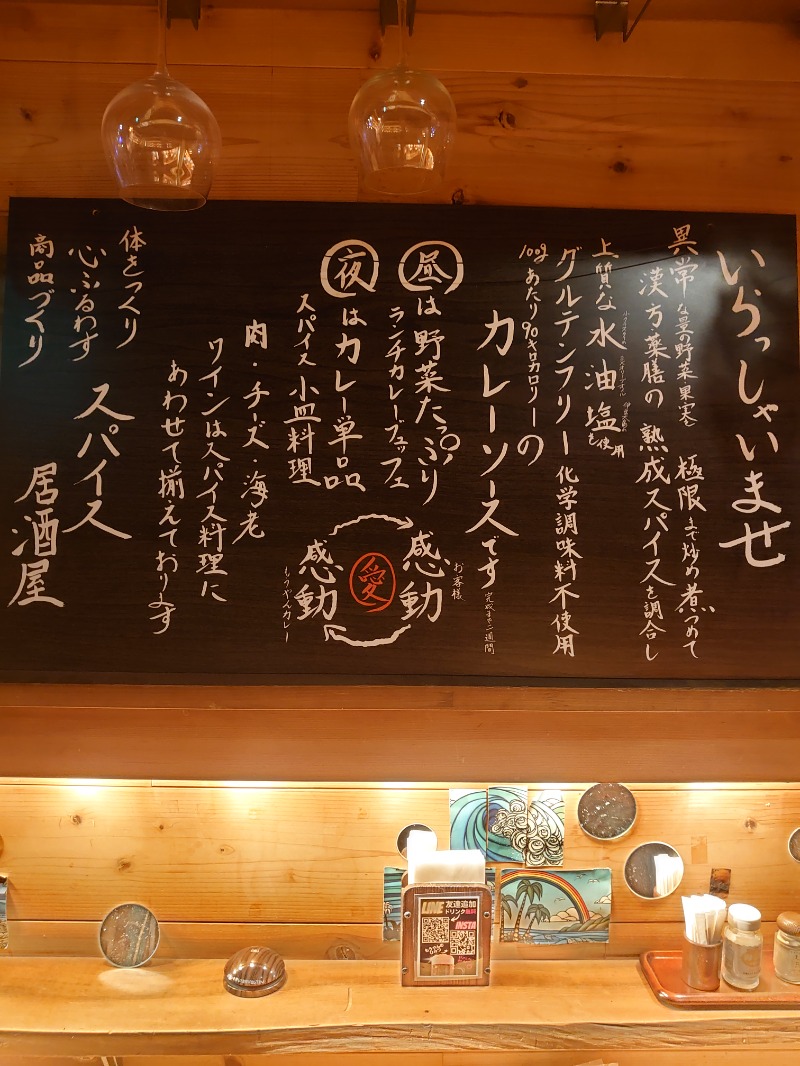 いらっしゃいませ
異常な量の野菜・果実を 極限まで炒め煮つめて
漢方薬膳の 熟成スパイスを調合し
上質な水油塩を使用
グルテンフリー 化学調味料不使用
100gあたり90キロカロリーの
カレーソースです
完成まで二週間
昼は野菜たっぷり
ランチカレーブッフェ
夜はカレー単品
スパイス小皿料理
お客様
感動
愛
感動
もうやんカレー
肉・チーズ・海老
ワインはスパイス料理に
あわせて揃えております
体をつくり
心ふるわす
商品づくり
スパイス
居酒屋
LINE 友達追加
ドリンク
INSTA